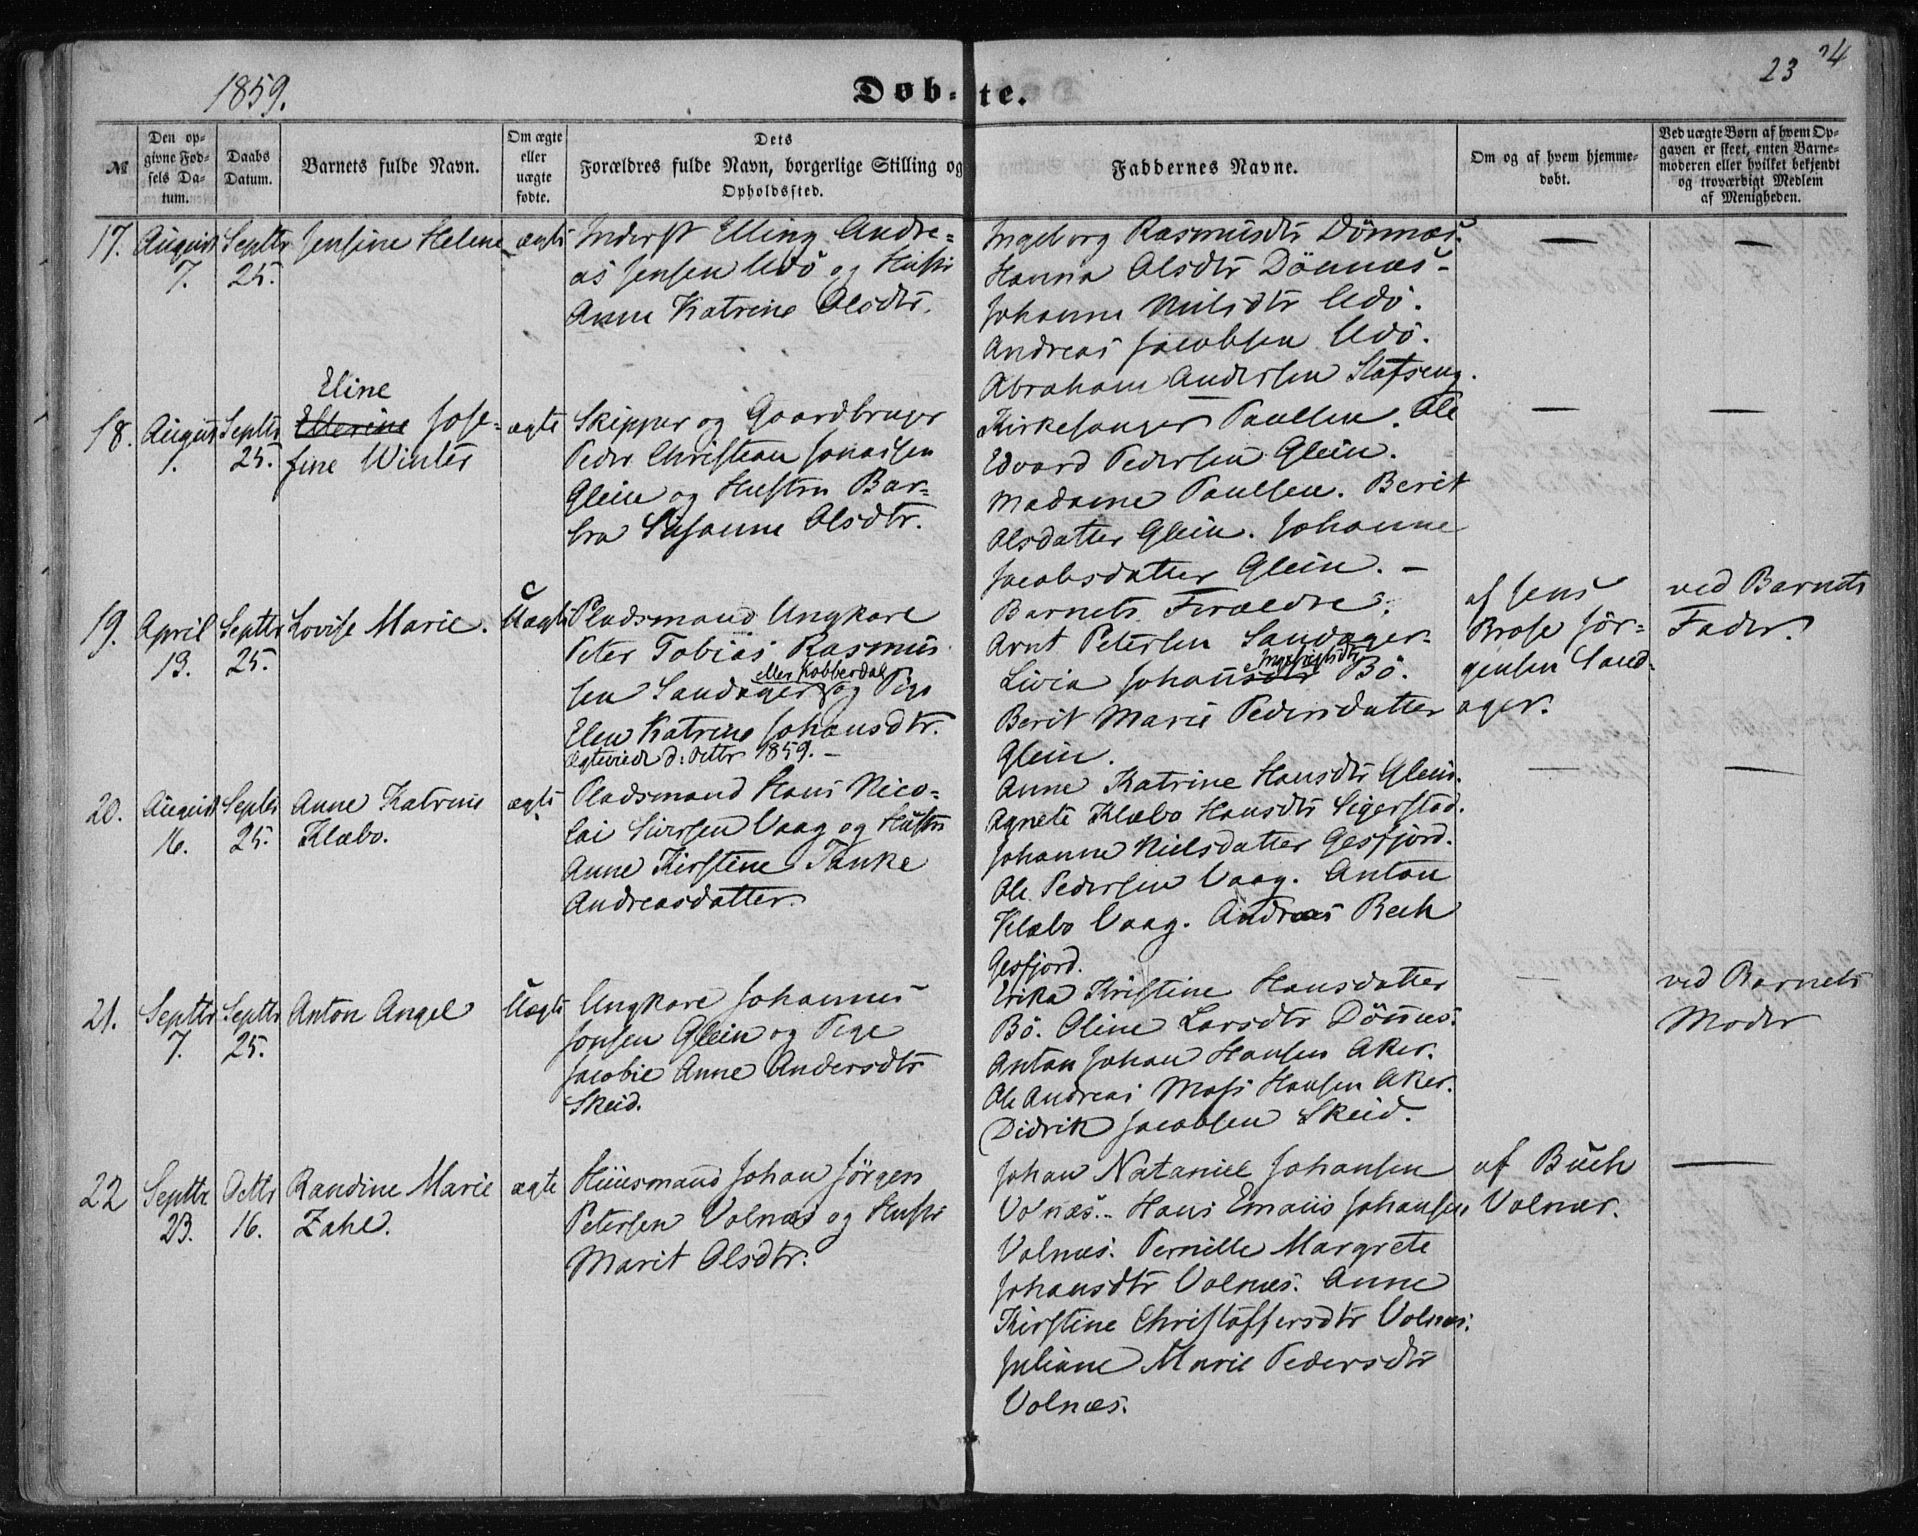 1859.
Døb-te.
23 24
№
Den op-
givne Fød-
sels Da-
tum.
Daabs
Datum.
Barnets fulde Navn.
Om ægte
eller
uægte
fødte.
Dets
Forældres fulde Navn, borgerlige Stilling og
Opholdssted.
Faddernes Navne.
Om og af hvem hjemme-
døbt.
Ved uægte Børn af hvem Op-
gaven er skeet, enten Barne-
moderen eller hvilket bekjendt
og troværdigt Medlem
af Menigheden.
17.
August
7.
Septbr
25.
Jensine Helene
ægte
Inderst Elling Andre-
as Jensen Udø og Hustr
Anne Katrine Olsdtr.
Ingeborg Rasmusdtr Dønnæs.
Hanna Olsdtr Dønnæs-
Johanna Nielsdtr Udø.
Andreas Jacobsen Udø.
Abraham Andersen Slatseng.
—
—
18.
August
1.
Septbr
25.
Eline
Ellerine Jose-
fine Winter
ægte
Skipper og Gaardbruger
Peder Christian Jonassen
Glein og Hustru Bar-
bra Susanne Olsdtr.
Kirkesanger Paulsen. Ole
Edvard Pedersen Glein.
Madame Paulsen. Berit
Olsdatter Glein. Johanne
Jacobsdatter Glein. —
—
—
19.
April
13.
Septbr
25.
Lovise Marie.
Uægte
Pladsmand Ungkare
Peter Tobias Rasmus
eller Kobberdal
sen Sandager og Pige
Elen Katrine Johansdtr.
Ægteviede d: Octbr 1859. —
Barnets Forældre.
Arnt Petersen Sandager.
Livia Johansdtr Bø.
Berit Marie Pedersdatter
Glein.
af Jens
Brose Jør-
gensen Sand-
ager.
ved Barnets
Fader.
20.
August
16.
Septbr
25.
Anne Katrine
Klæbo.
ægte
Pladsmand Hans Nico-
lai Siversen Vaag og Hustr
Anne Kirstine Tanke
Andreasdatter.
Anne Katrine Hansdtr Glein.
Agnete Klæbo Hansdtr Sigerstad.
Johanne Nielsdatter Gesfjord.
Ole Pedersen Vaag. Anton
Klæbo Vaag. Andreas Bech
Gesfjord.
—
—
21.
Septbr
7.
Septbr
25.
Anton Angel
Uægte
Ungkare Johannes
Jonsen Glein og Pige
Jacobie Anne Andersdtr
Skeid.
Erika Kristine Hansdatter
Bø. Oline Larsdtr Dønnes.
Anton Johan Hansen Aker.
Ole Andreas Moss Hansen Aker.
Didrik Jacobsen Skeid.
—
ved Barnets
Moder
22
Septbr
23.
Octbr
16.
Randine Marie
Zahl.
ægte
Huusmand Johan Jørgen
Petersen Volnæs og Hustr
Marit Olsdtr.
Johan Nataniel Johansen
Volnæs. Hans Emaus Johansen
Volnæs. Pernille Margrete
Johansdtr Volnæs. Anne
Kirstine Christoffersdtr Volnæs.
Juliane Marie Pedersdtr
Volnæs.
af Buch
Volnæs.
—